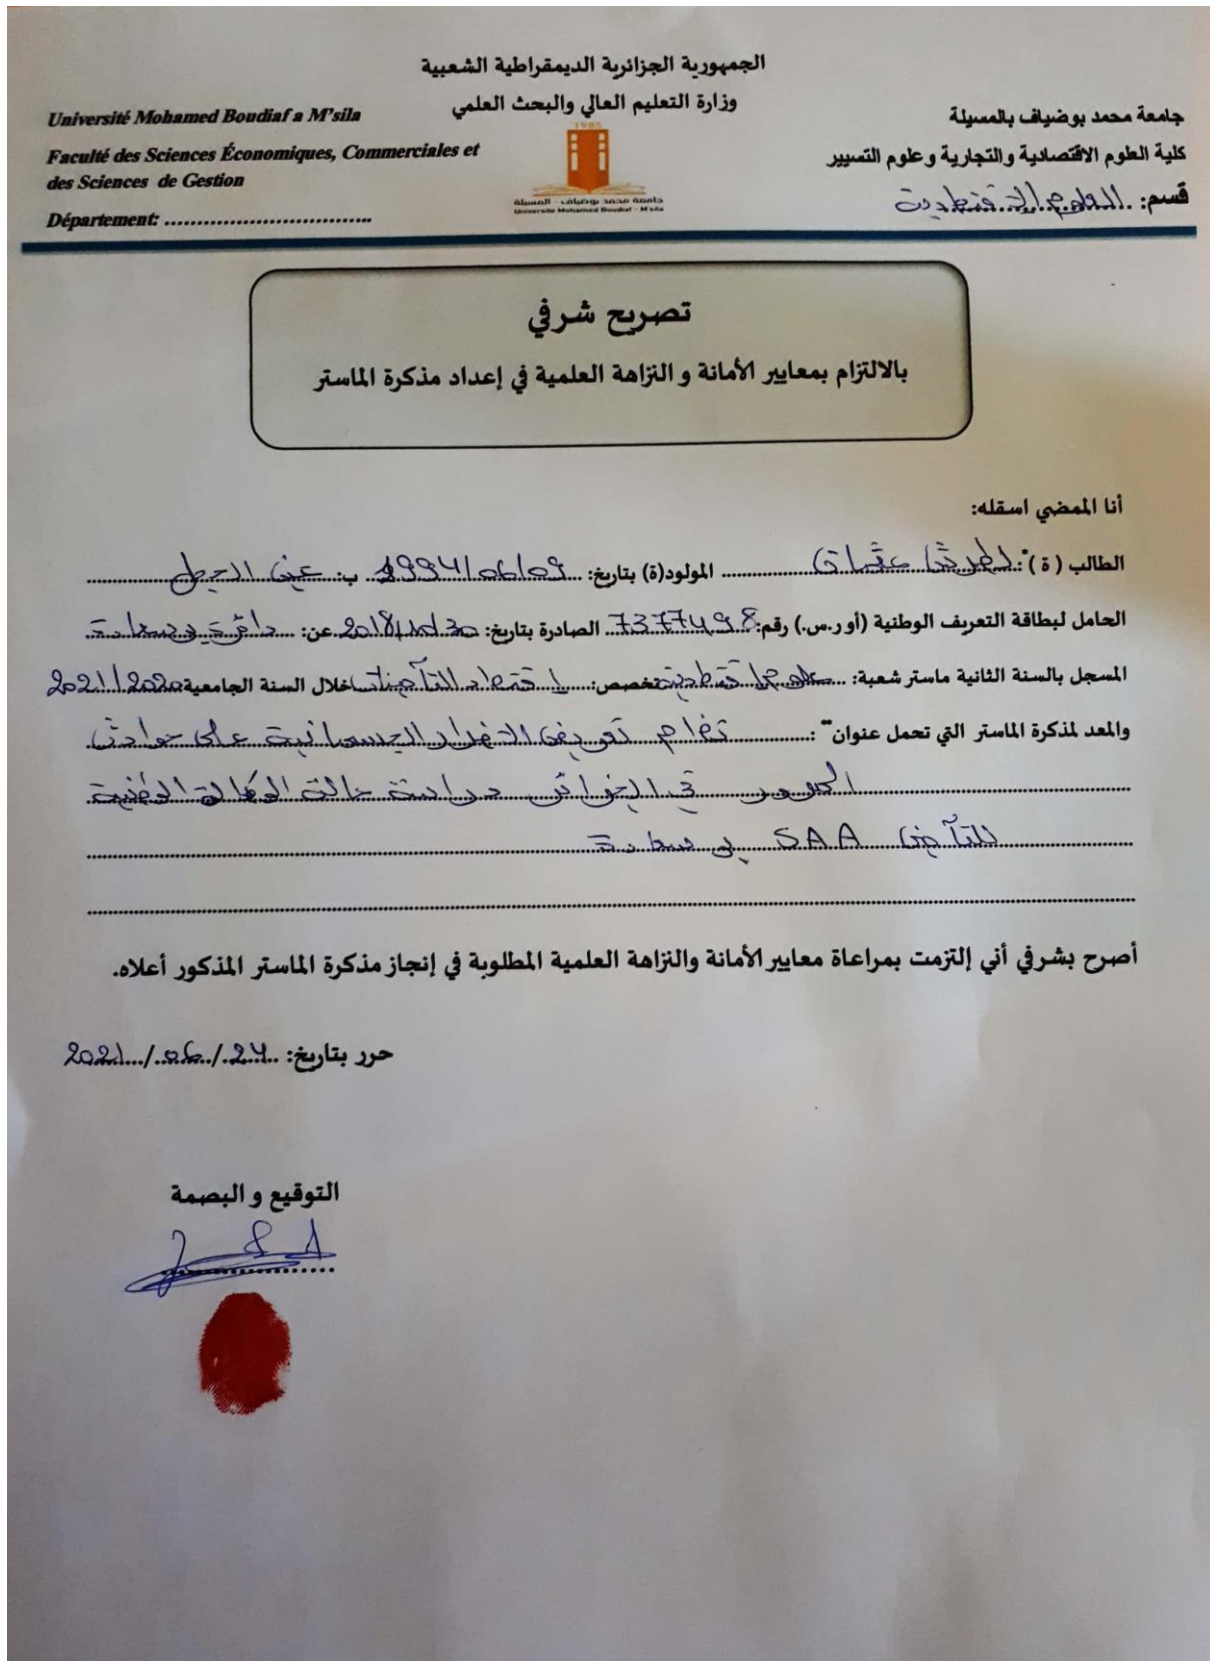 الجمهورية الجزائرية الديمقراطية الشعبية
وزارة التعليم العالي والبحث العلمي
جامعة محمد بوضياف بالمسيلة
كلية العلوم الاقتصادية والتجارية وعلوم التسيير
قسم: العلوم الاقتصادية
Université Mohamed Boudiaf a M'sila
Faculté des Sciences Économiques, Commerciales et
des Sciences de Gestion
Département: ................................
1985
جامعة محمد بوضياف - المسيلة
Université Mohamed Boudiaf - M'sila
تصريح شرفي
بالالتزام بمعايير الأمانة و النزاهة العلمية في إعداد مذكرة الماستر
أنا الممضي اسقله:
الطالب (ة): عثمان المولود(ة) بتاريخ: 1994/06/09 ب: عين الحجل
الحامل لبطاقة التعريف الوطنية (أو ر.س.) رقم: 7377498 الصادرة بتاريخ: 2018/10/30 عن: دائرة بوسعادة
المسجل بالسنة الثانية ماستر شعبة: علوم اقتصادية تخصص: اقتصاد التأمينات خلال السنة الجامعية 2021/2020
والمعد لمذكرة الماستر التي تحمل عنوان": نظام تعويض الاضرار الجسمانية على حوادث
المرور في الجزائر دراسة حالة الوكالة الوطنية
للتأمين SAA بوسعادة
أصرح بشرفي أني إلتزمت بمراعاة معايير الأمانة والنزاهة العلمية المطلوبة في إنجاز مذكرة الماستر المذكور أعلاه.
حرر بتاريخ: 24/06/2021
التوقيع و البصمة